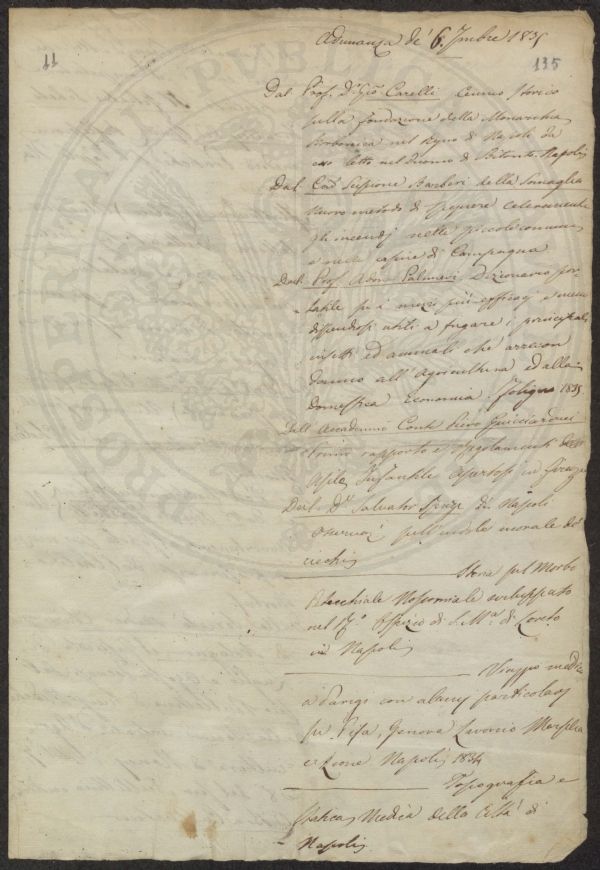 Adunanza de' 6. 7mbre 1835
11
135
Dal Prof. Dr Gio Carelli Cenno Storico
sulla fondazione della Monarchia
Borbonica nel Regno di Napoli da
esso letto nel Duomo di Bitonto. Napoli
Dal Cav Scipione Barberi della Somaglia
Nuovo metodo di spegnere celeremente
gli incendj nelle piccole comuni
e nelle case di Campagna
Dal Prof. Palmieri Dizionario por-
tatile su i mezzi più efficaci e meno
dispendiosi utili a fugare i principali
insetti ed animali che arrecan
danno all'Agricoltura ed alla
Domestica Economia. Foligno 1835
Dall'Accademico Conte Piero Guicciardini
Primo rapporto e Regolamenti dell'
Asilo Infantile Apertosi in Firenze
Dal Dr Salvator di Napoli
Osservaz sull'indole morale dei
ciechi
Storia sul Morbo
Petecchiale Nosocomiale sviluppato
nel Rº. Ospizio di S. Ma. di Loreto
in Napoli
Viaggio medico
a Parigi con alcuni particolari
su Pisa, Genova Livorno Marsilia
e Lione Napoli 1834
Topografia e
Statica Medica della Città di
Napoli